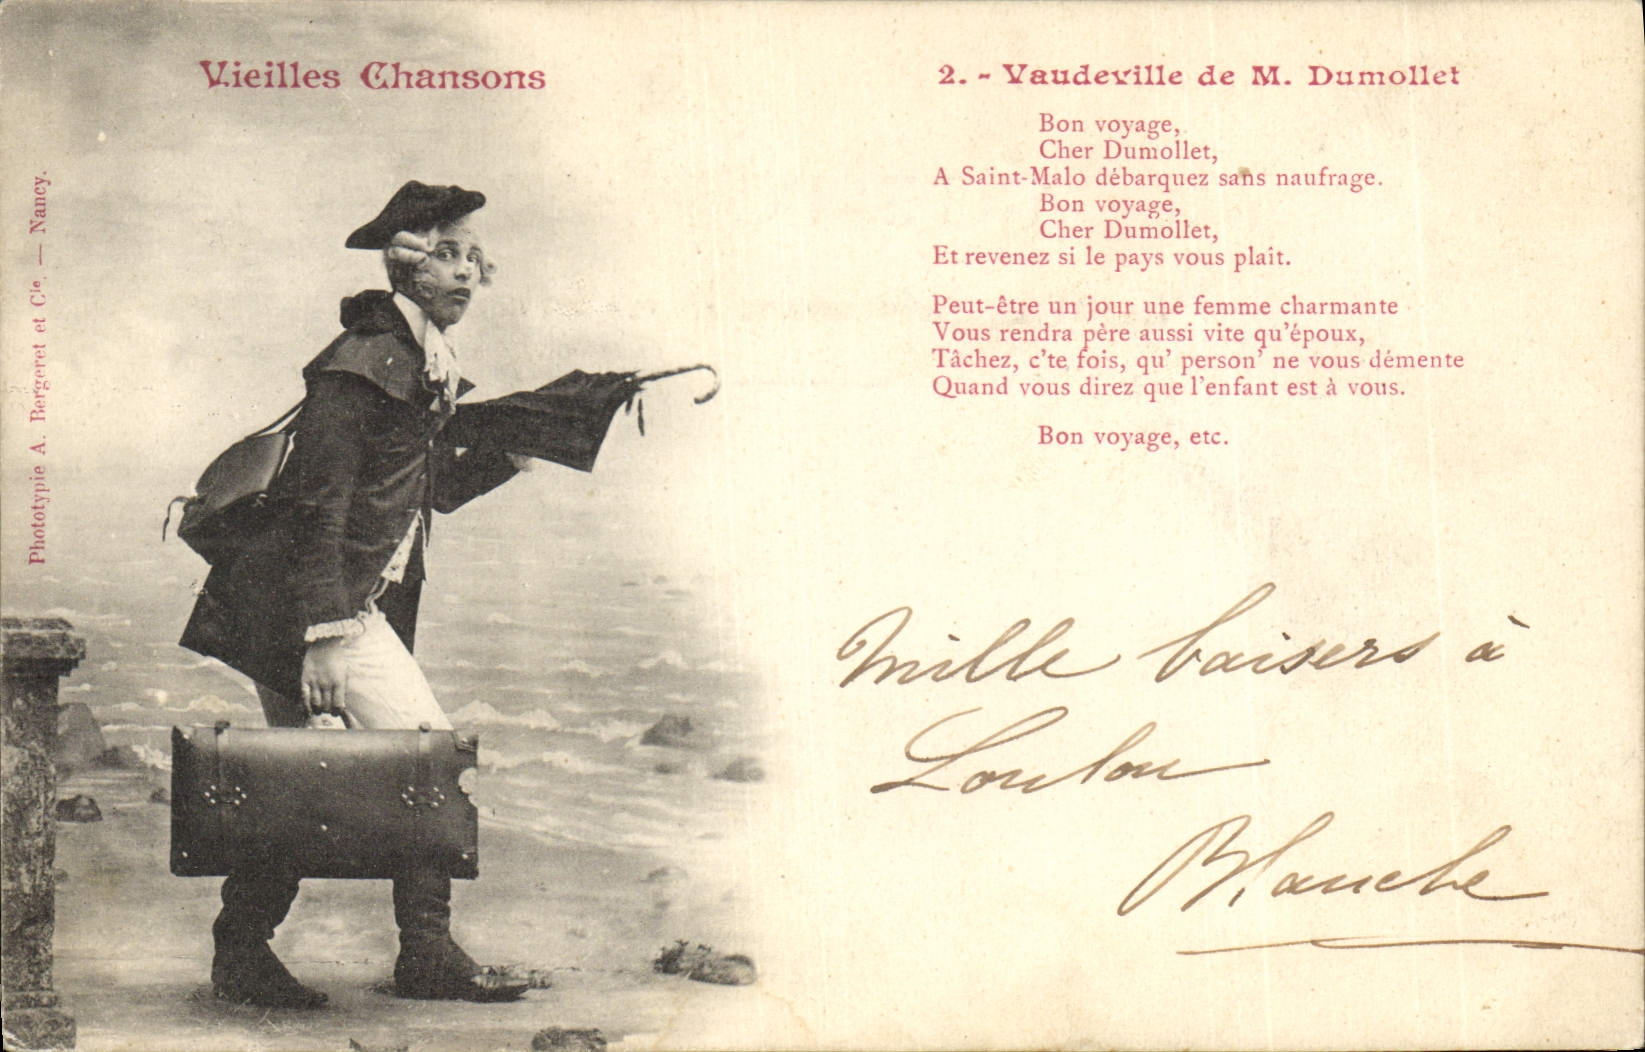 Vieilles Chansons
Phototypie A. Bergeret et Cie. — Nancy.
2. - Vaudeville de M. Dumollet
Bon voyage,
Cher Dumollet,
A Saint-Malo débarquez sans naufrage.
Bon voyage,
Cher Dumollet,
Et revenez si le pays vous plait.
Peut-être un jour une femme charmante
Vous rendra père aussi vite qu'époux,
Tâchez, c'te fois, qu' person' ne vous démente
Quand vous direz que l'enfant est à vous.
Bon voyage, etc.
Mille baisers à
Loulou
Blanche